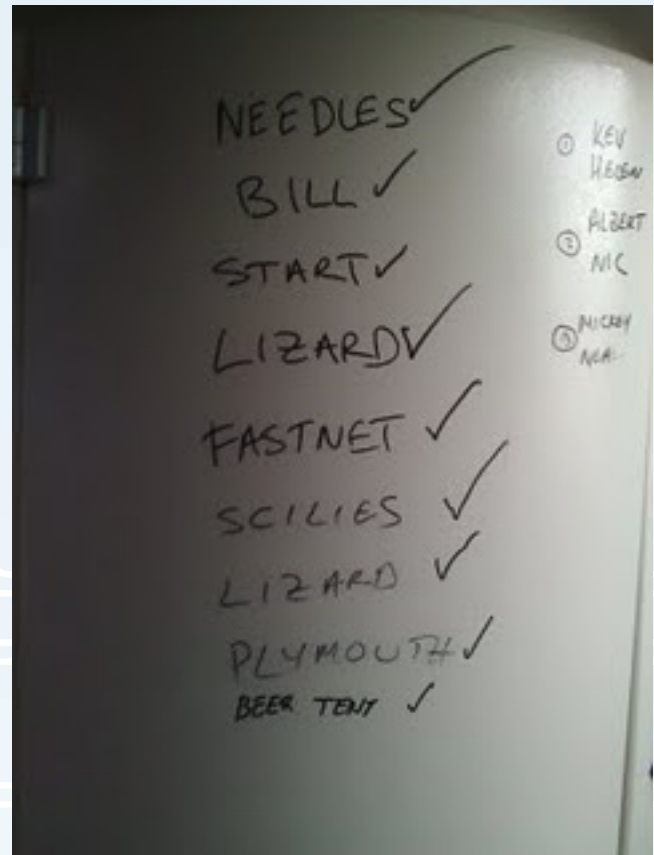 NEEDLES
BILL
START
LIZARD
FASTNET
SCILIES
LIZARD
PLYMOUTH
BEER TENT
① KEV
HELEN
② ALBERT
NIC
③ MICKEY